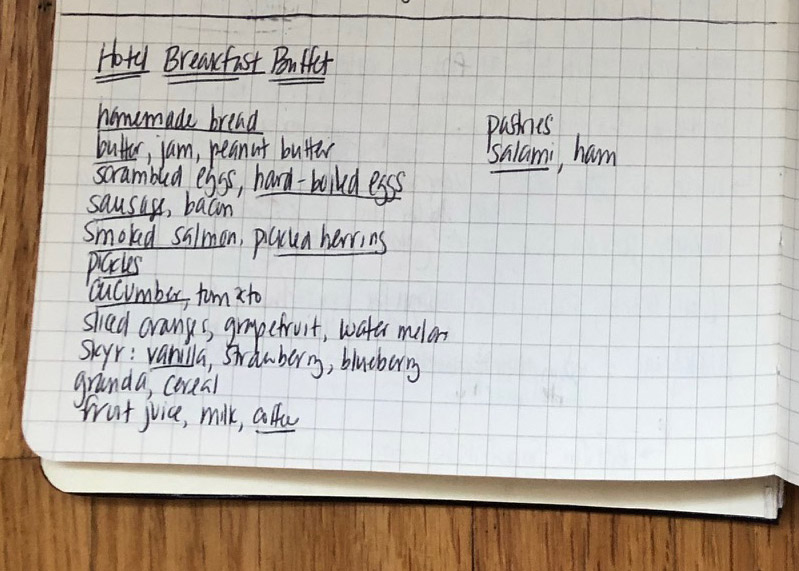 Hotel Breakfast Buffet
homemade bread
butter, jam, peanut butter
scrambled eggs, hard-boiled eggs
sausage, bacon
smoked salmon, pickled herring
pickles
cucumber, tomato
sliced oranges, grapefruit, watermelon
skyr: vanilla, strawberry, blueberry
granola, cereal
fruit juice, milk, coffee
pastries
salami, ham